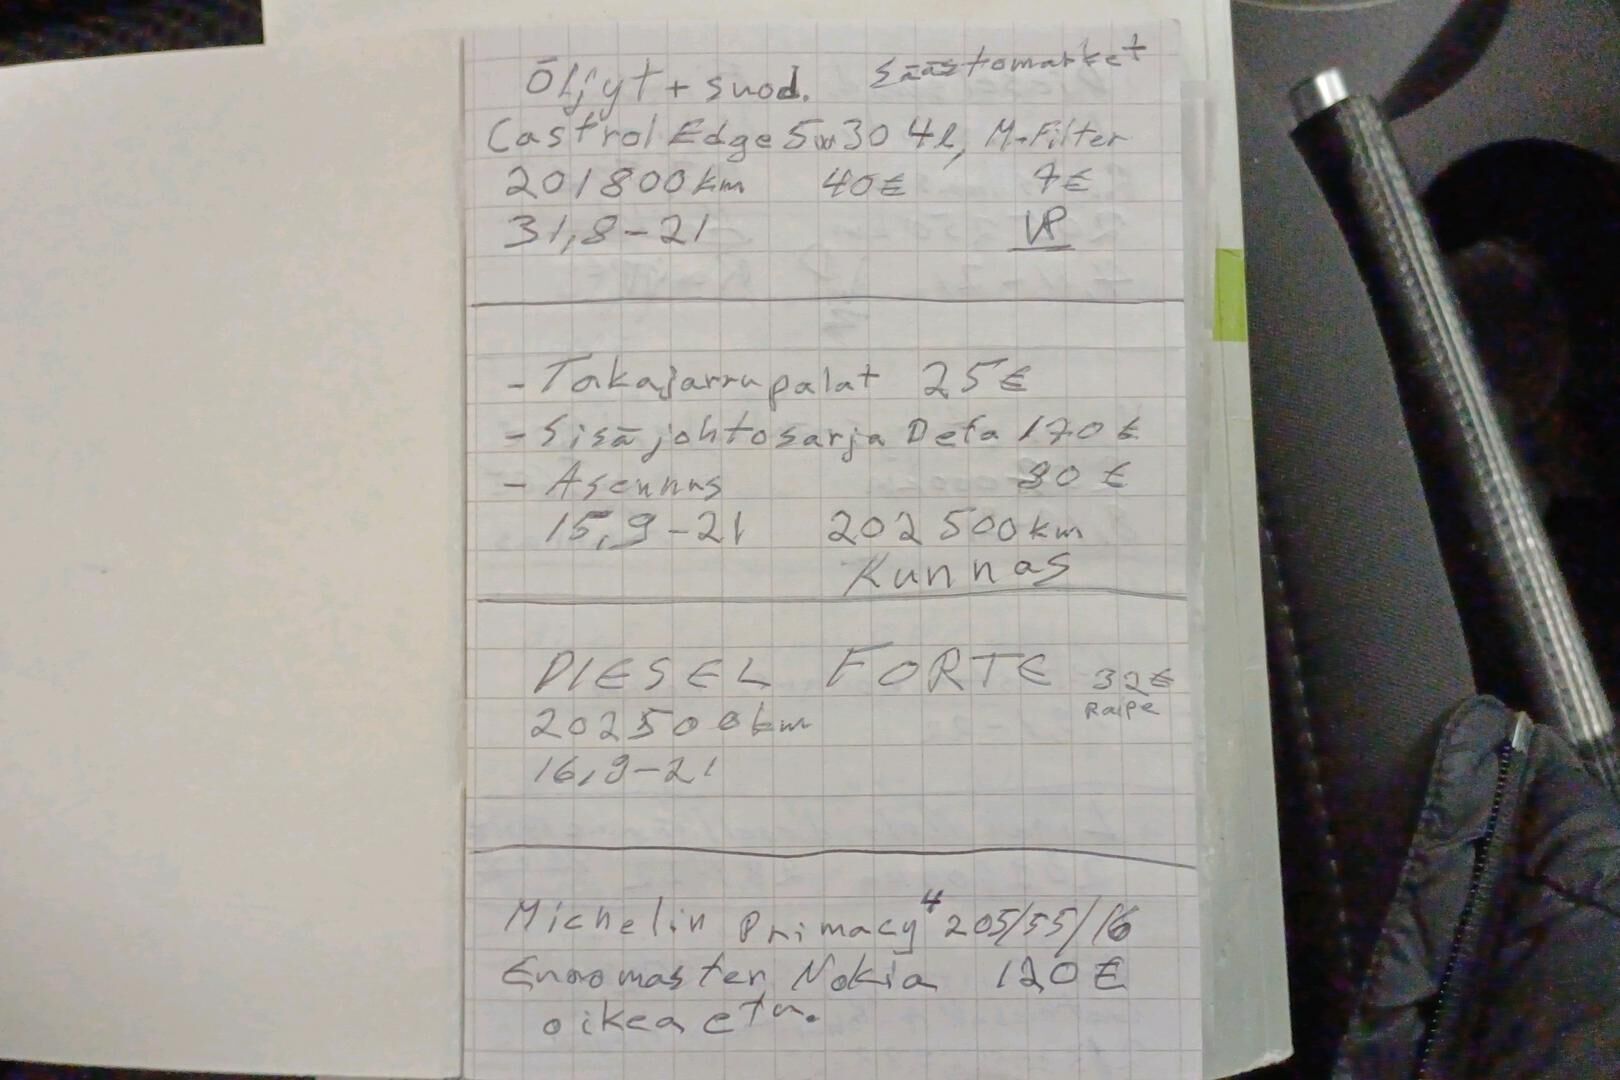 Öljyt + suod. Säästomarket
Castrol Edge 5w30 4l, M-Filter
201800km 40€ 7€
31,8-21 VP
- Takajarrupalat 25€
- Sisäjohtosarja Defa 170€
- Asennus 80€
15,9-21 202500km
Kunnas
DIESEL FORTE 32€
202500km Raipe
16,9-21
Michelin Primacy 4 205/55/16
Euromaster Nokia 120€
oikea etu.